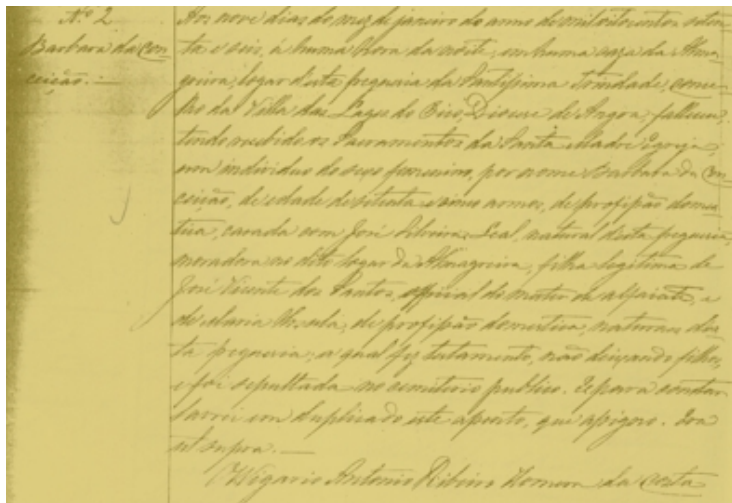 Nº 2
Barbara da Con-
ceição. —
Aos nove dias do mez de janeiro do anno de mil oitocentos seten-
ta e seis, á huma hora da noite, em huma caza da Alma-
greira, logar d'esta freguezia da Santissima Trindade, conce-
lho da Villa das Lages do Pico, Diocese de Angra, falleceu,
tendo recebido os Sacramentos da Santa Madre Egreja,
um individuo do sexo femenino, por nome Barbara da Con-
ceição, de edade de setenta e cinco annos, de profissão domes-
tica, cazada com José Silveira Leal, natural d'esta freguezia,
moradora no dito logar da Almagreira, filha legitima de
José Vicente dos Santos, official do mister de alfaiate, e
de Maria Ursula, de profissão domestica, naturaes des-
ta freguezia, a qual fez testamento, não deixando filhos,
e foi sepultada no cemiterio publico. E para constar
lavrei em duplicado este assento, que assigno. Era
ut supra. —
O Vigario Antonio Ribeiro Homem da Costa